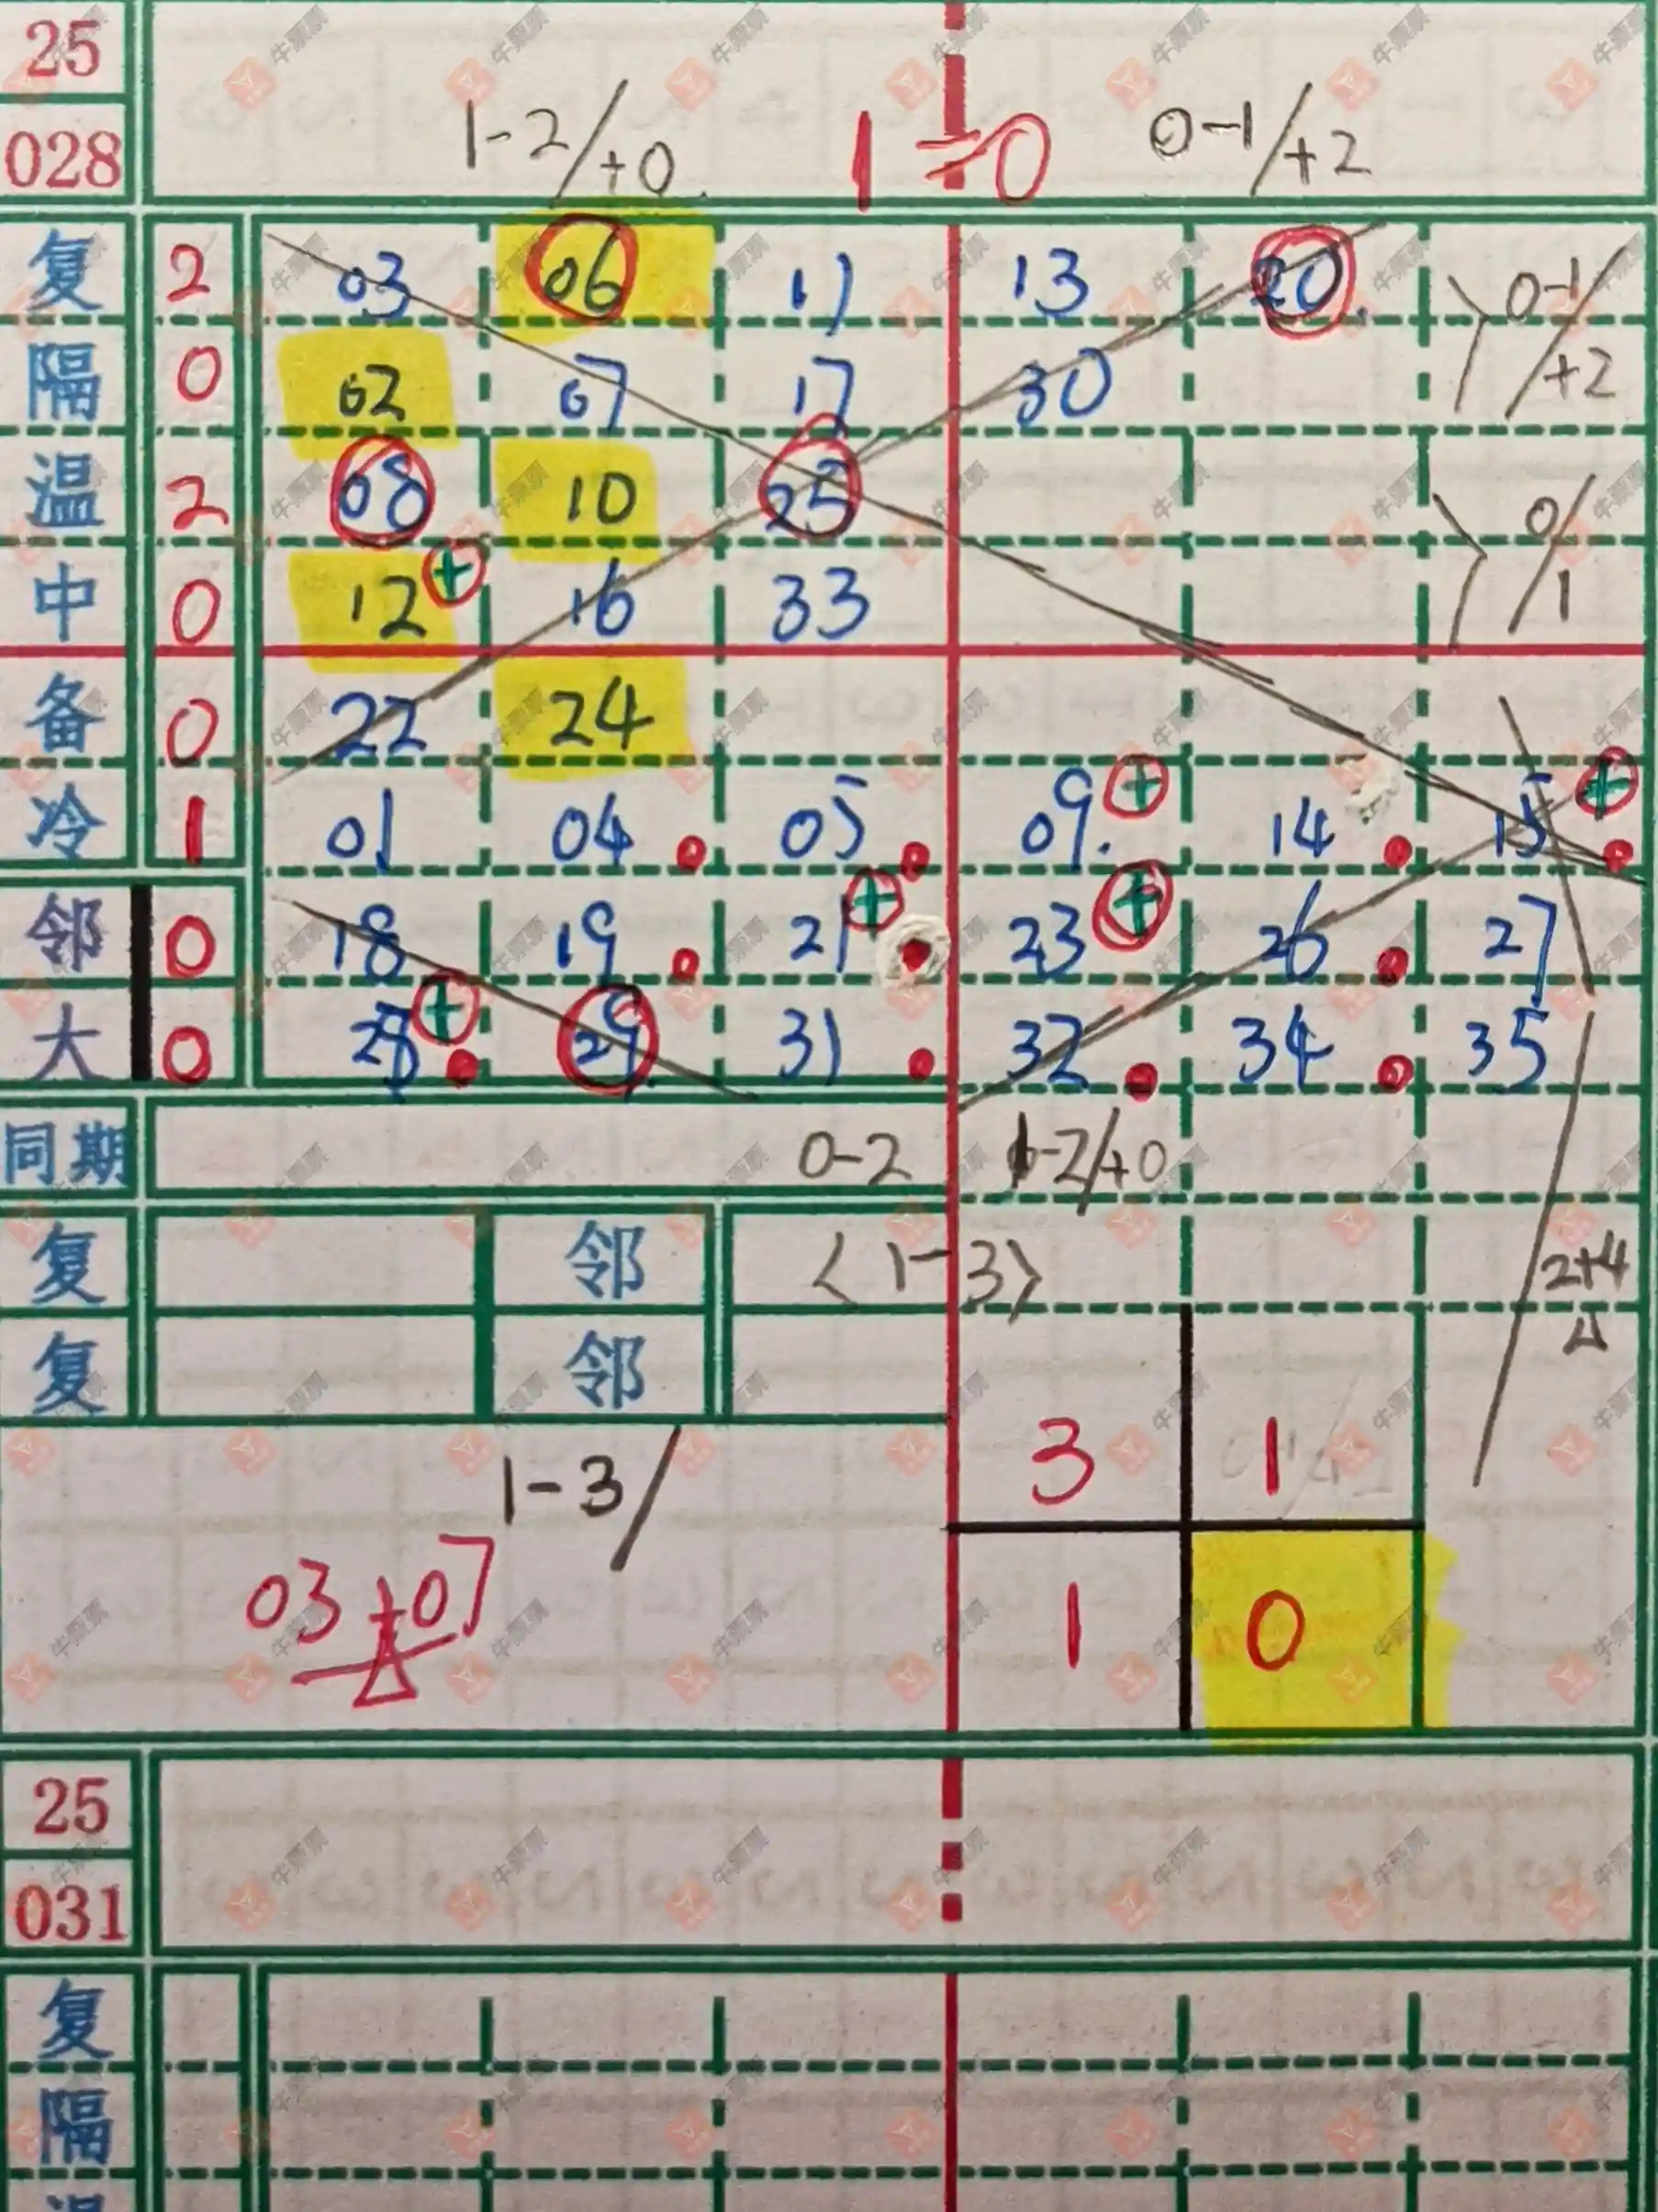 25
028
1-2/+0 1÷0 0-1/+2
复 2 03 06 11 13 20 0-1/+2
隔 0 02 07 17 30
温 2 08 10 25 0/1
中 0 12 + 16 33
备 0 22 24
冷 1 01 04 05 09. + 14 15 +
邻 0 18 19 21 + 23 + 26 27
大 0 28 + 29 31 32 34 35
同期 0-2 1-2/+0
复 邻 <1-3> 2+4
复 邻
3 1
1-3/
03+07 1 0
25
031
复
隔
温
牛票票